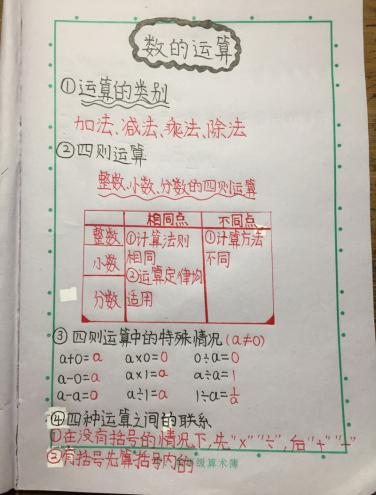 数的运算
①运算的类别
加法、减法、乘法、除法
②四则运算
整数、小数、分数的四则运算
相同点 不同点
整数 ①计算法则 ①计算方法
小数 相同 不同
②运算定律均
分数 适用
③四则运算中的特殊情况(a≠0)
a+0=a a×0=0 0÷a=0
a-0=a a×1=a a÷a=1
a-a=a a÷1=a 1÷a=1/a
④四种运算之间的联系
①在没有括号的情况下,先"×""÷",后"+""-"
②有括号先算括号内的
级算术簿